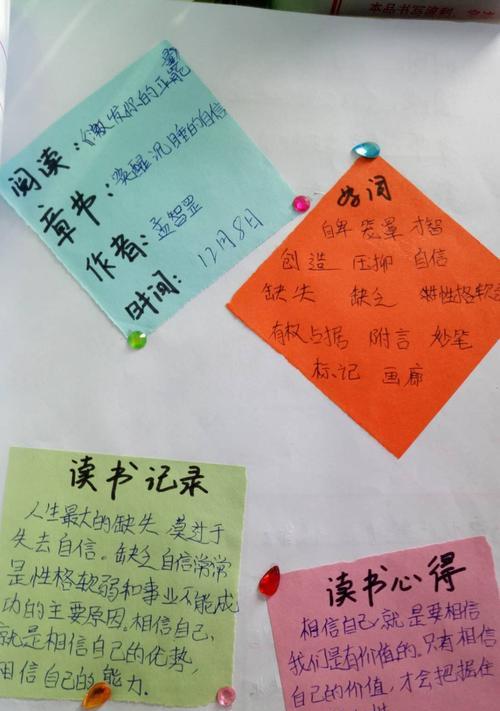 阅读:《激发你的正能量
章书:唤醒沉睡的自信
作者:孟智罡
时间:12月8日
好词
自卑 笼罩 才智
创造 压抑 自信
缺失 缺乏 性格软
有权占据 附言 妙笔
标记 画廊
读书记录
人生最大的缺失,莫过于
失去自信。缺乏自信常常
是性格软弱和事业不能成
功的主要原因。相信自己,
就是相信自己的优势,
相信自己的能力.
读书心得
相信自己就是要相信
我们是有价值的。只有相信
自己的价值,才会把握住
本品书写流利,